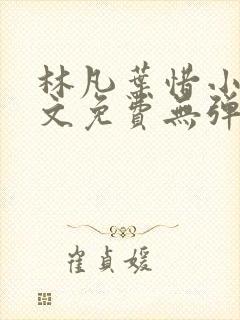 林凡葉惜小
文免費無彈
崔貞媛